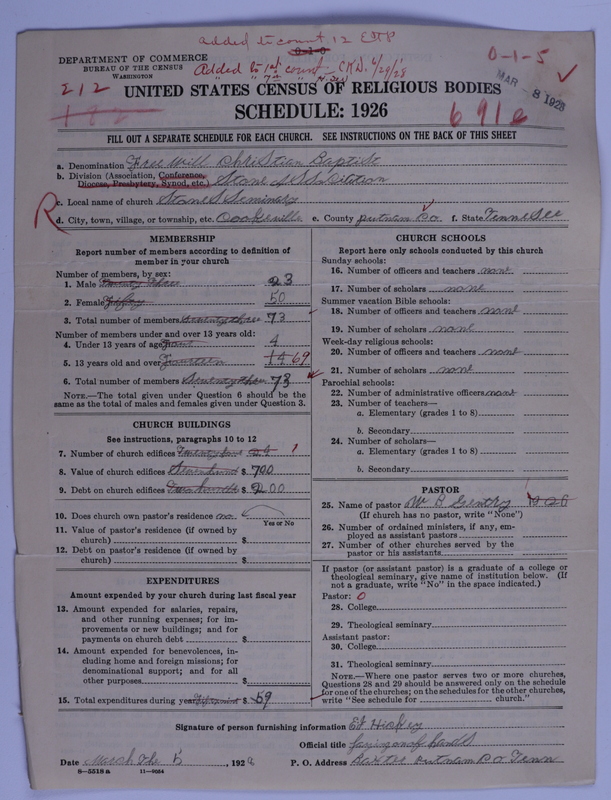 added to count 12 EFP
DEPARTMENT OF COMMERCE
BUREAU OF THE CENSUS
WASHINGTON
0-1-0
Added to 1st count C.K.D. 6/29/28
0-1-5
MAR - 8 1928
212
182
UNITED STATES CENSUS OF RELIGIOUS BODIES
SCHEDULE: 1926
691c
FILL OUT A SEPARATE SCHEDULE FOR EACH CHURCH. SEE INSTRUCTIONS ON THE BACK OF THIS SHEET
a. Denomination Free Will Christian Baptist
b. Division (Association, Conference, Diocese, Presbytery, Synod, etc.) Stone
c. Local name of church Stones Seminary
R
d. City, town, village, or township, etc. Cookeville e. County putnam Co f. State Tennessee
MEMBERSHIP
Report number of members according to definition of
member in your church
Number of members, by sex:
1. Male Twenty three 23
2. Female Fifty 50
3. Total number of members Seventy three 73
Number of members under and over 13 years old:
4. Under 13 years of age Four 4
5. 13 years old and over Fourteen 14 69
6. Total number of members Seventy three 73
NOTE.—The total given under Question 6 should be
same as the total of males and females given under Question 3.
CHURCH BUILDINGS
See instructions, paragraphs 10 to 12
7. Number of church edifices 1
8. Value of church edifices $ 700
9. Debt on church edifices $ 200
10. Does church own pastor's residence no
Yes or No
11. Value of pastor's residence (if owned by
church) $
12. Debt on pastor's residence (if owned by
church) $
EXPENDITURES
Amount expended by your church during last fiscal year
13. Amount expended for salaries, repairs,
and other running expenses; for im-
provements or new buildings; and for
payments on church debt $
14. Amount expended for benevolences, in-
cluding home and foreign missions; for
denominational support; and for all
other purposes $
15. Total expenditures during year $ 59
CHURCH SCHOOLS
Report here only schools conducted by this church
Sunday schools:
16. Number of officers and teachers none
17. Number of scholars none
Summer vacation Bible schools:
18. Number of officers and teachers none
19. Number of scholars none
Week-day religious schools:
20. Number of officers and teachers none
21. Number of scholars none
Parochial schools:
22. Number of administrative officers none
23. Number of teachers—
a. Elementary (grades 1 to 8)
b. Secondary
24. Number of scholars—
a. Elementary (grades 1 to 8)
b. Secondary
PASTOR
25. Name of pastor W B Gentry 1926
(If church has no pastor, write "None")
26. Number of ordained ministers, if any, em-
ployed as assistant pastors
27. Number of other churches served by the
pastor or his assistants
If pastor (or assistant pastor) is a graduate of a college or
theological seminary, give name of institution below. (If
not a graduate, write "No" in the space indicated.)
Pastor: 0
28. College
29. Theological seminary
Assistant pastor:
30. College
31. Theological seminary
NOTE.—Where one pastor serves two or more churches,
Questions 28 and 29 should be answered only on the schedule
for one of the churches; on the schedules for the other churches,
write "See schedule for church."
Signature of person furnishing information
Official title laying on of hands
Date March the 5, 192
P. O. Address putnam Co Tenn
8-5518a 11-9054